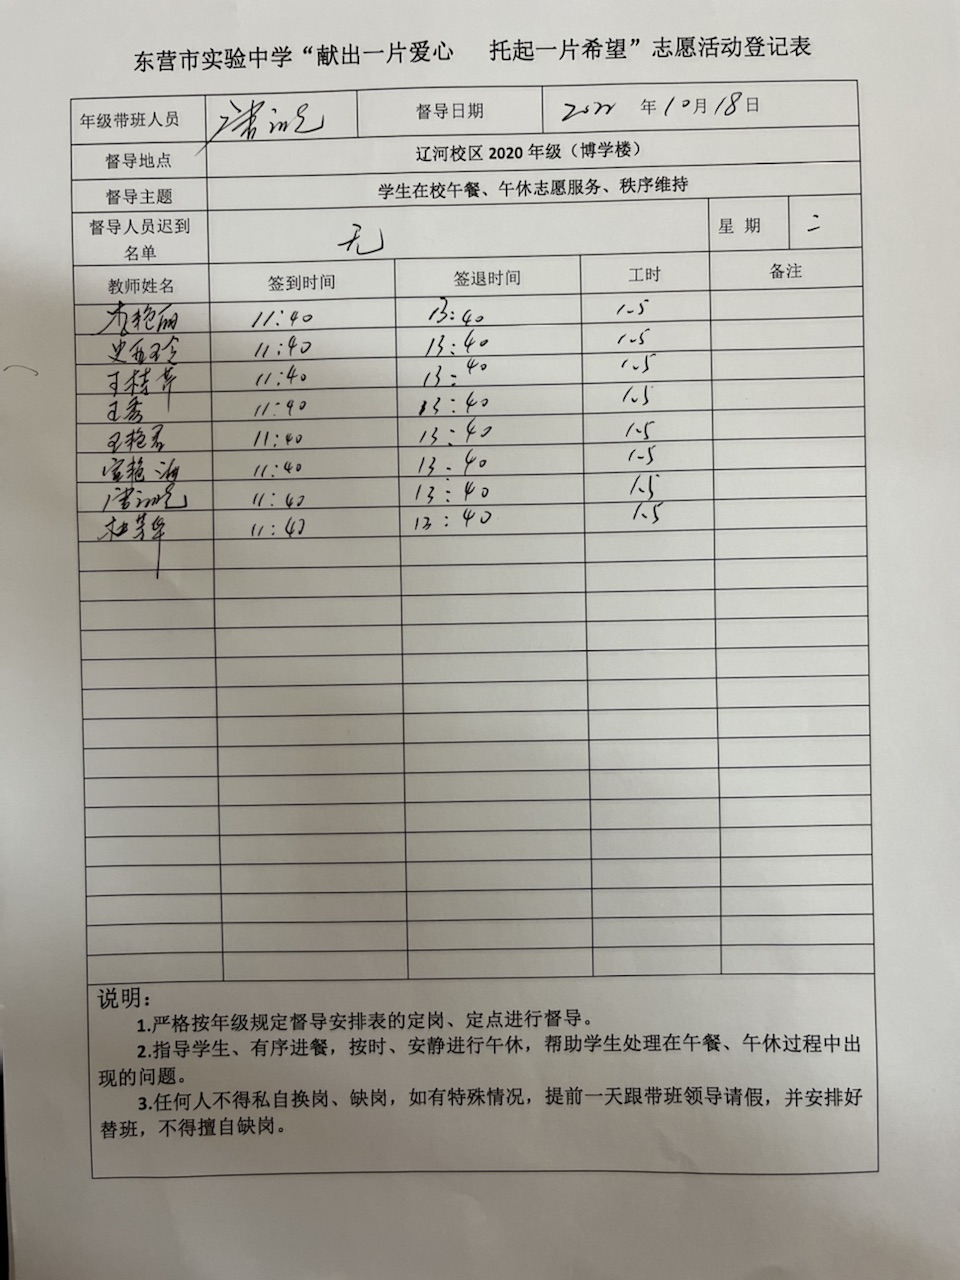 东营市实验中学“献出一片爱心 托起一片希望”志愿活动登记表
年级带班人员 督导日期 2022 年 10 月 18 日
督导地点 辽河校区 2020 年级（博学楼）
督导主题 学生在校午餐、午休志愿服务、秩序维持
督导人员迟到名单 无 星 期 二
教师姓名 签到时间 签退时间 工时 备注
李艳丽 11:40 13:40 1.5
史西玲 11:40 13:40 1.5
王桂芹 11:40 13:40 1.5
王秀 11:40 13:40 1.5
王艳君 11:40 13:40 1.5
宫艳海 11:40 13:40 1.5
11:40 13:40 1.5
杜芳华 11:40 13:40 1.5
说明：
1.严格按年级规定督导安排表的定岗、定点进行督导。
2.指导学生、有序进餐，按时、安静进行午休，帮助学生处理在午餐、午休过程中出
现的问题。
3.任何人不得私自换岗、缺岗，如有特殊情况，提前一天跟带班领导请假，并安排好
替班，不得擅自缺岗。